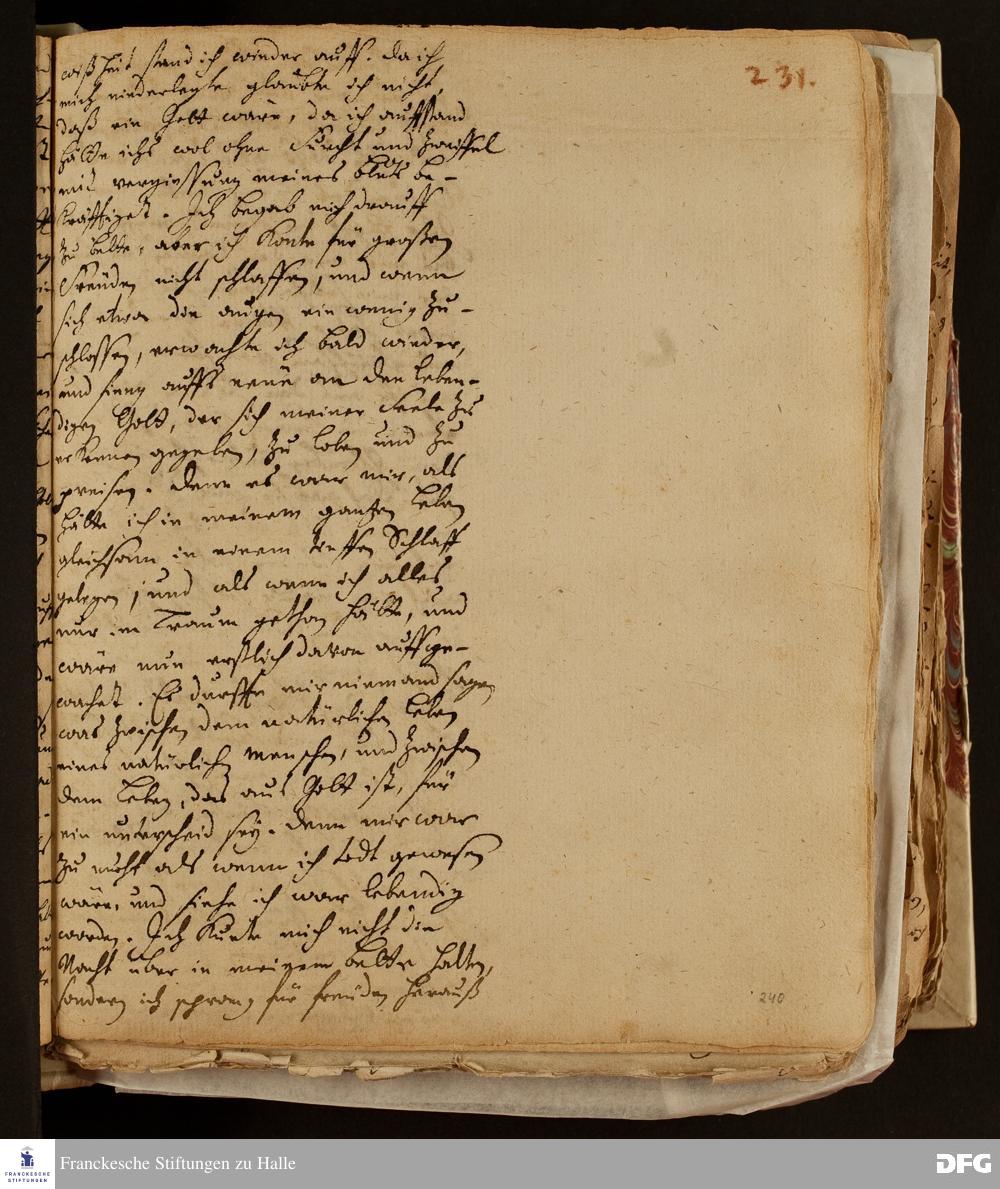 231.
wißheit stand ich wieder auff. da ich
mich niederlegte glaubte ich nicht,
daß ein Gott wäre, da ich auffstand
hätte ichs wol ohne Furcht und Zweiffel
mit vergiessung meines bluts be-
kräfftiget. Ich begab mich drauff
zu bette, aber ich konte für großen
Freuden nicht schlaffen, und wenn
sich etwa die augen ein wenig zu-
schlossen, erwachte ich bald wieder,
und fieng auffs neue an den leben-
digen Gott, der sich meiner Seele zu
erkennen gegeben, zu loben und zu
preisen. Denn es war mir, als
hätte ich in meinem gantzen Leben
gleichsam in einem tieffen Schlaff
gelegen, und als wenn ich alles
nur im Traum gethan hätte, und
wäre nun erstlich davon auffge-
wachet. Es durffte mir niemand sagen
was zwischen dem natürlichen Leben
eines natürlichen menschen, und zwischen
dem Leben, das aus Gott ist, für
ein unterscheid sey. Denn mir war
zu muht als wenn ich todt gewesen
wäre, und siehe ich war lebendig
worden. Ich kunte mich nicht die
Nacht über in meinem bette halten,
sondern ich sprang für freuden herauß
240
FRANCKESCHE
STIFTUNGEN
Franckesche Stiftungen zu Halle
DFG